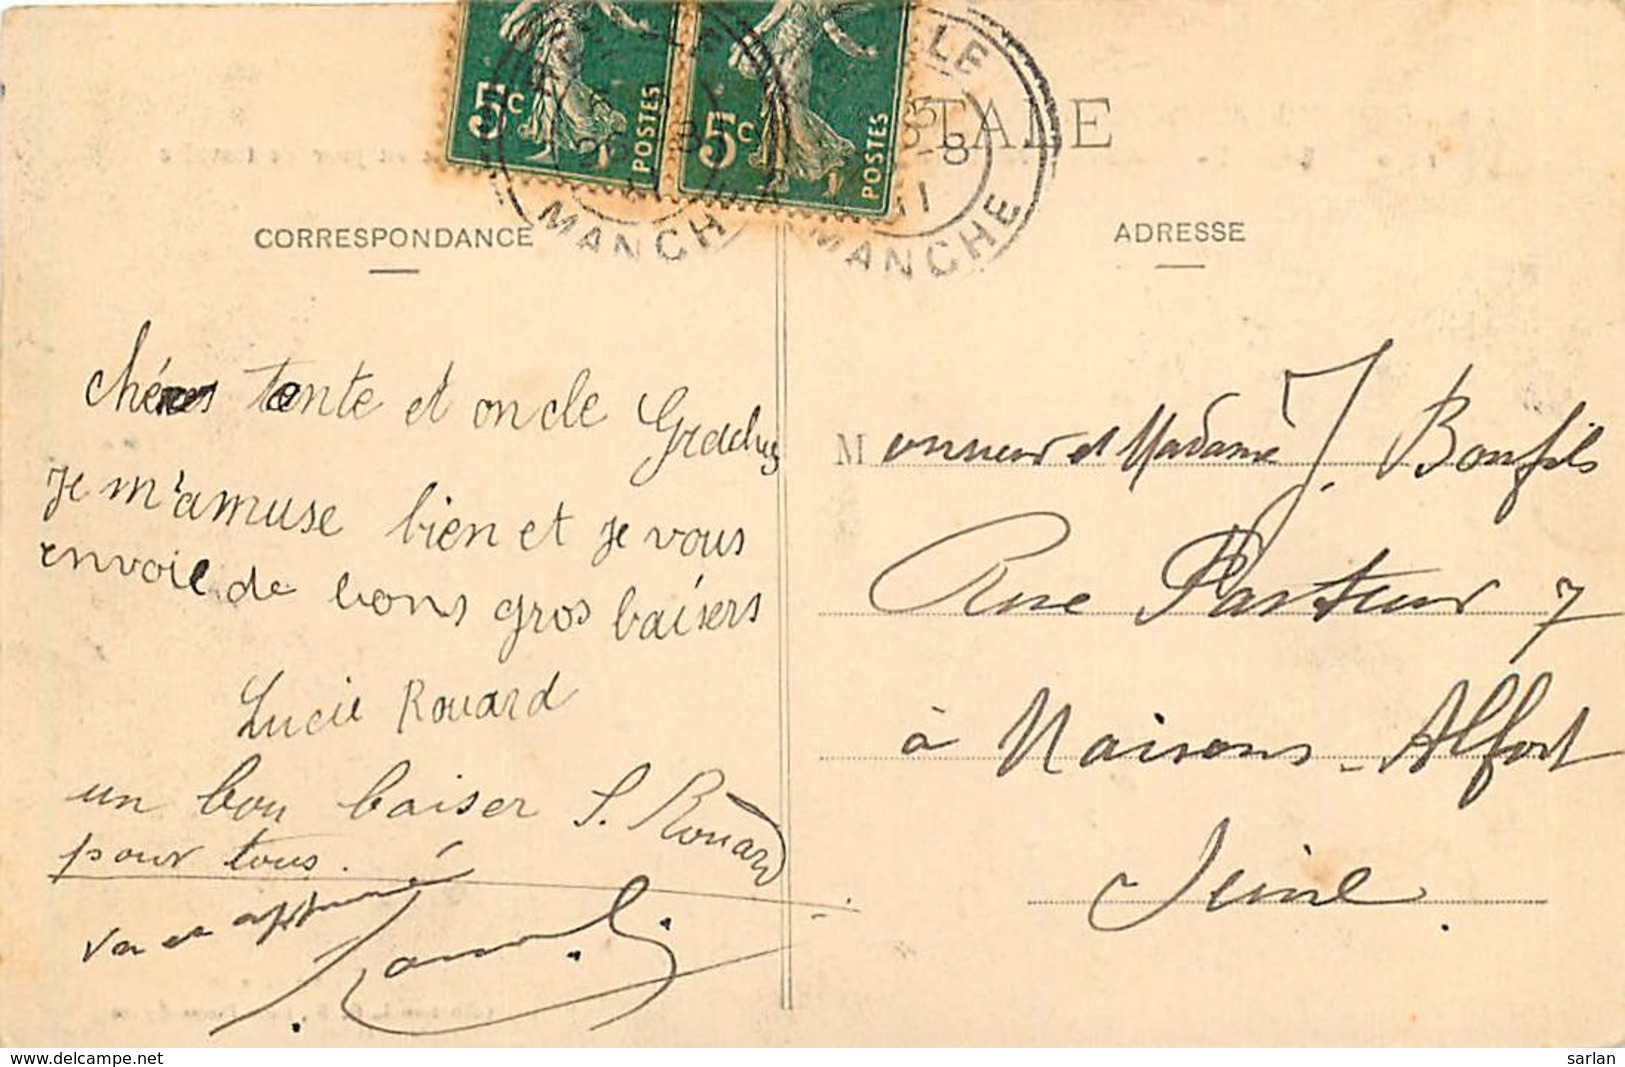 5c POSTES
5c POSTES
LE
25 -8
11
MANCHE
MANCHE
TALE
CORRESPONDANCE
ADRESSE
chéres tente et oncle Gracchus
Je m'amuse bien et je vous
envoie de bons gros baisers
Lucie Rouard
un bon baiser S. Rouard
pour tous.
Vu et approuvé
Monsieur et Madame J. Bonfils
Rue Pasteur 7
à Maisons-Alfort
Seine.
www.delcampe.net
sarlan